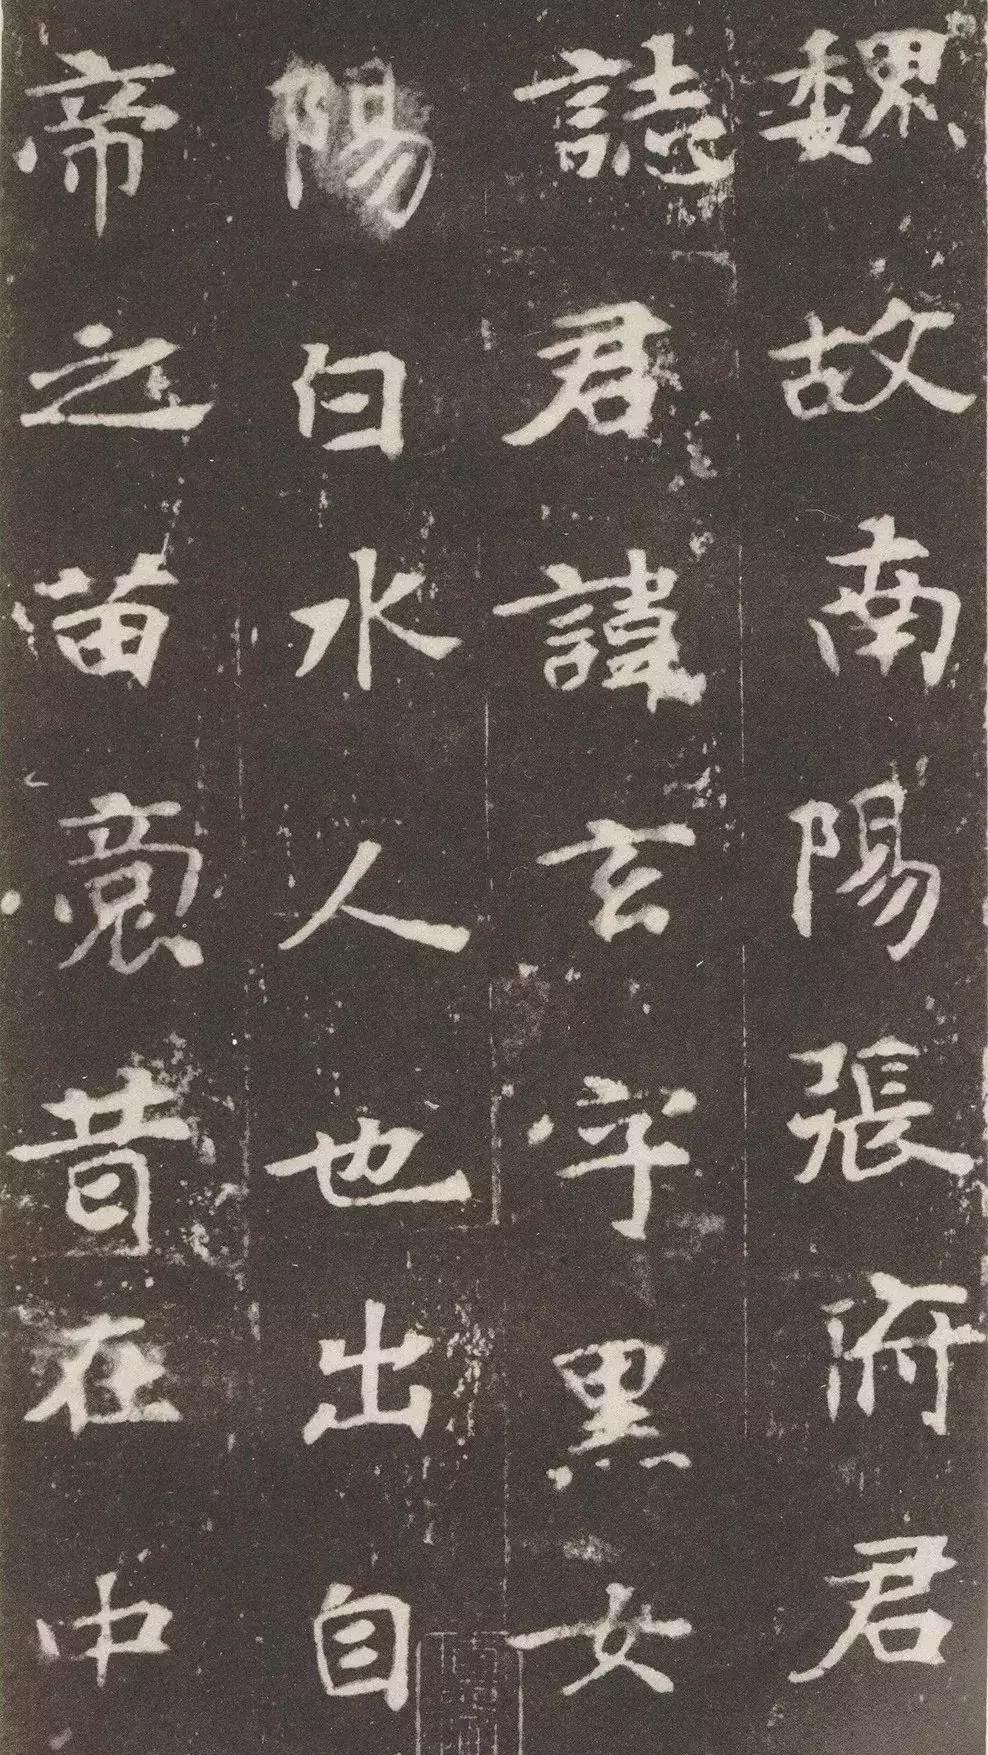 魏故南陽張府君
誌君諱玄字黑女
陽白水人也出自
帝之苗裔昔在中